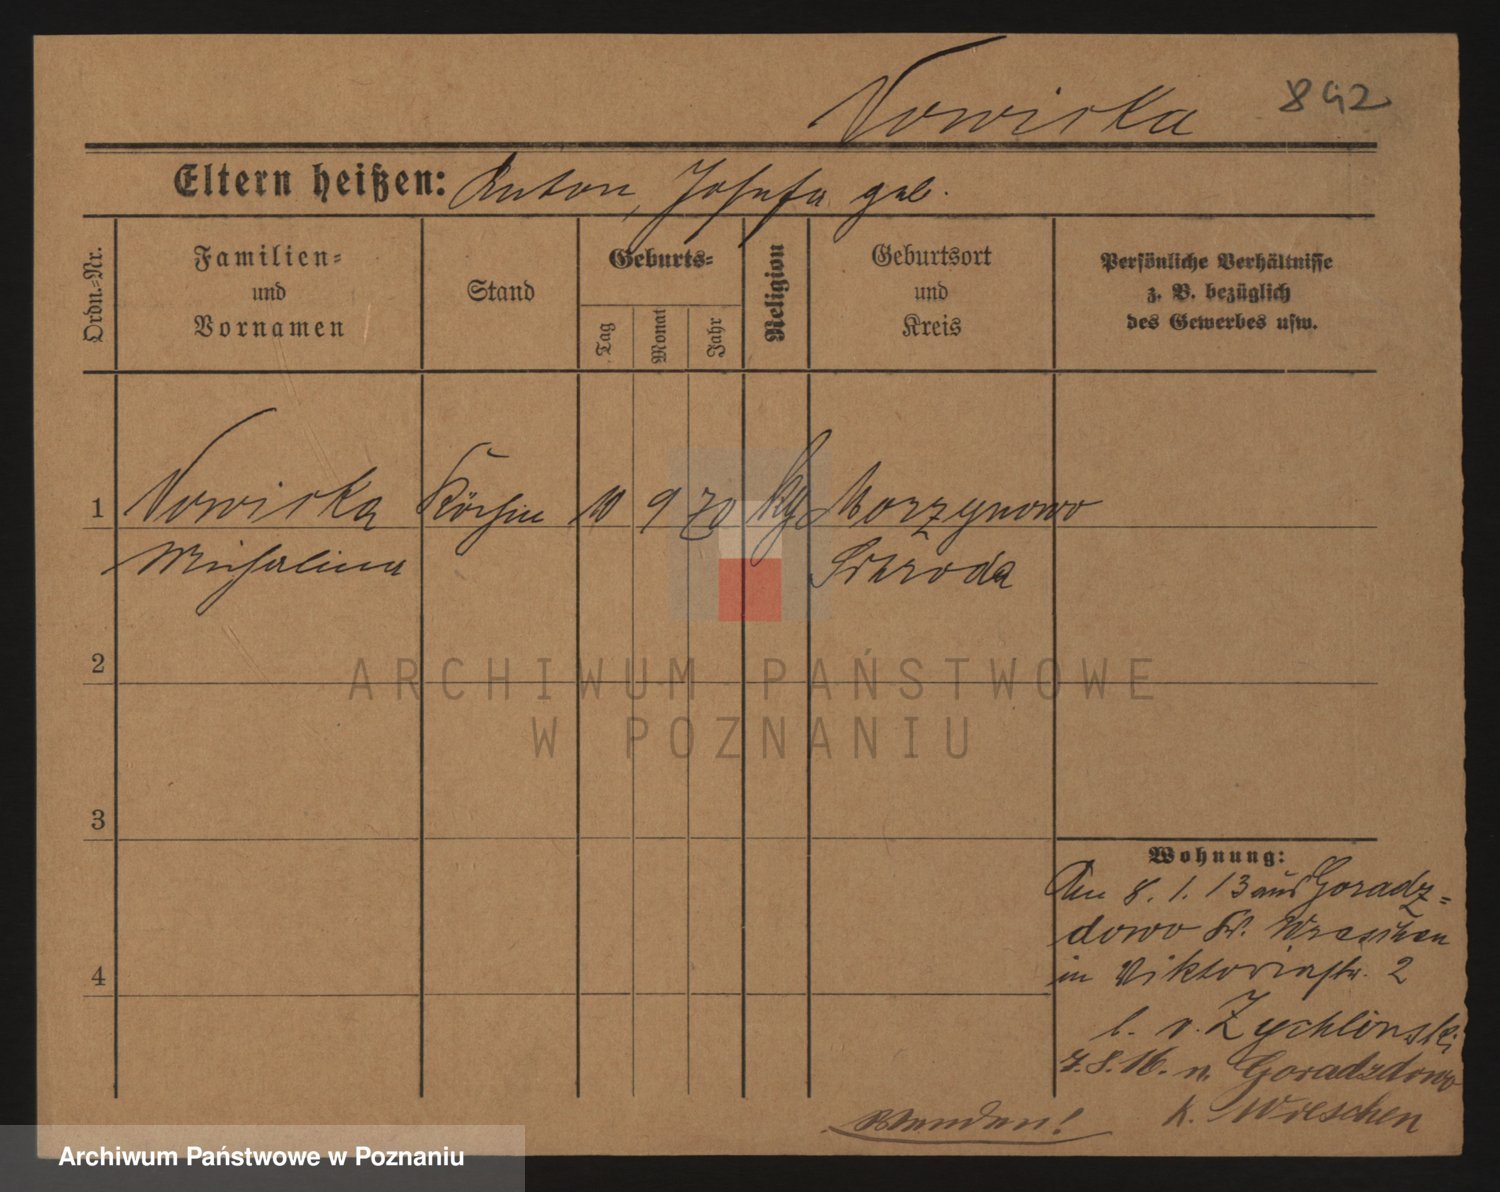 Nowicka 892
Eltern heißen: Anton, Josefa geb.
Ordn.-Nr.
Familien-
und
Vornamen
Stand
Geburts-
Tag
Monat
Jahr
Religion
Geburtsort
und
Kreis
Persönliche Verhältnisse
z. B. bezüglich
des Gewerbes usw.
1 Nowicka Köchin 10 9 70 kg Murzynowo
Michalina Schroda
2
3
4
Wohnung:
Am 8. 1. 13 aus Goradz-
dowo Kr. Wreschen
in Viktoriastr. 2
b. v. Zychlinski
7.8.16. n. Goradzdowo
K. Wreschen
ARCHIWUM PAŃSTWOWE
W POZNANIU
Archiwum Państwowe w Poznaniu